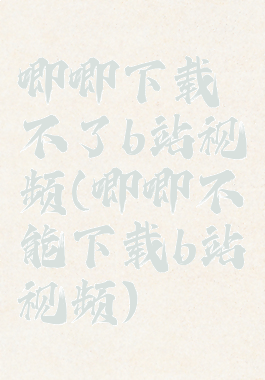 唧唧下载
不了b站视
频(唧唧不
能下载b站
视频)